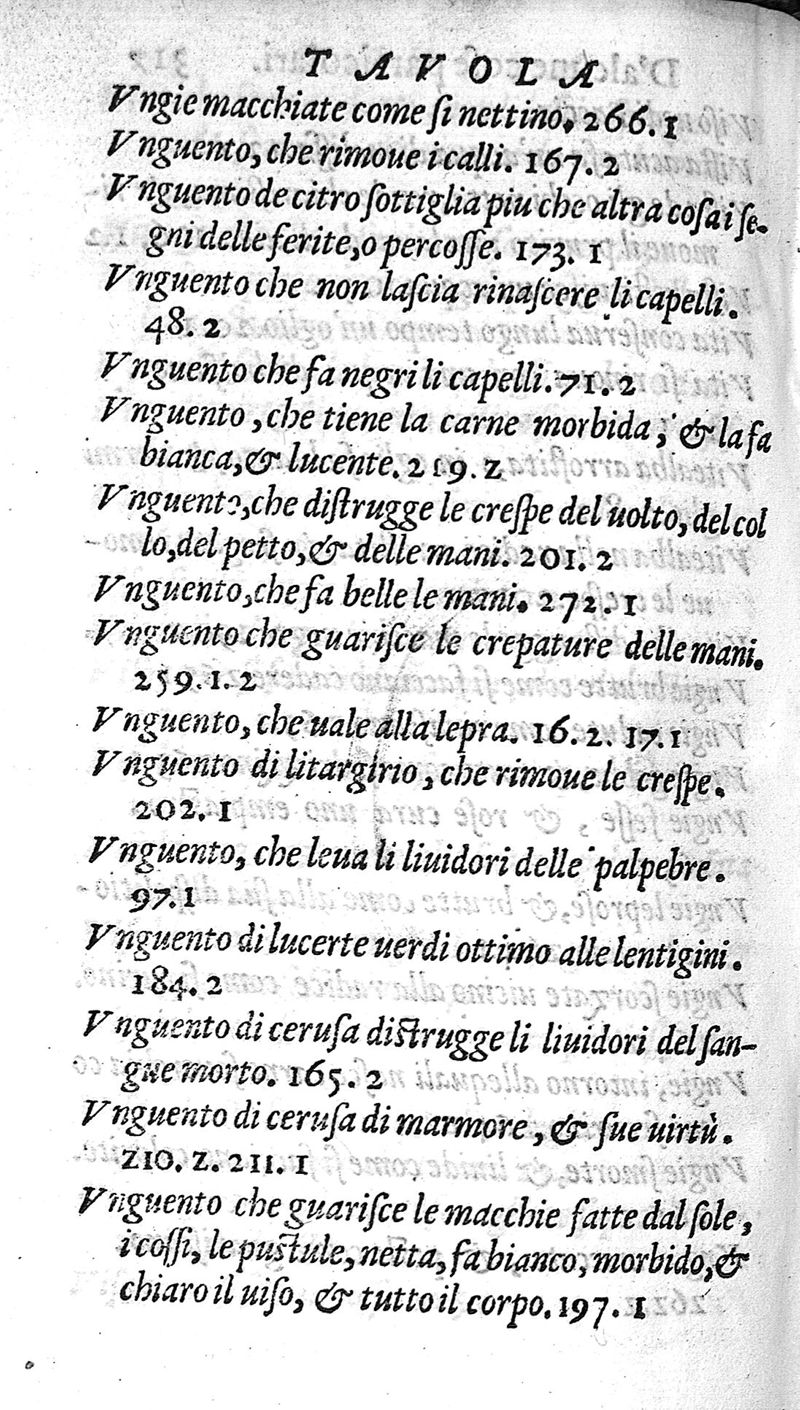 TAVOLA
Vngie macchiate come ſi nettino. 266. 1
Vnguento, che rimoue i calli. 167. 2
Vnguento de citro ſottiglia piu che altra coſa i ſe-
gni delle ferite, o percoſſe. 173. 1
Vnguento che non laſcia rinaſcere li capelli.
48. 2
Vnguento che fa negri li capelli. 71. 2
Vnguento, che tiene la carne morbida, & la fa
bianca, & lucente. 219. 2
Vnguento, che diſtrugge le creſpe del uolto, del col
lo, del petto, & delle mani. 201. 2
Vnguento, che fa belle le mani. 272. 1
Vnguento che guariſce le crepature delle mani.
259. 1. 2
Vnguento, che uale alla lepra. 16. 2. 17. 1
Vnguento di litargirio, che rimoue le creſpe.
202. 1
Vnguento, che leua li liuidori delle palpebre.
97. 1
Vnguento di lucerte uerdi ottimo alle lentigini.
184. 2
Vnguento di ceruſa diſtrugge li liuidori del ſan-
gue morto. 165. 2
Vnguento di ceruſa di marmore, & ſue uirtù.
210. 2. 211. 1
Vnguento che guariſce le macchie fatte dal ſole,
i coſſi, le puſtule, netta, fa bianco, morbido, &
chiaro il uiſo, & tutto il corpo. 197. 1